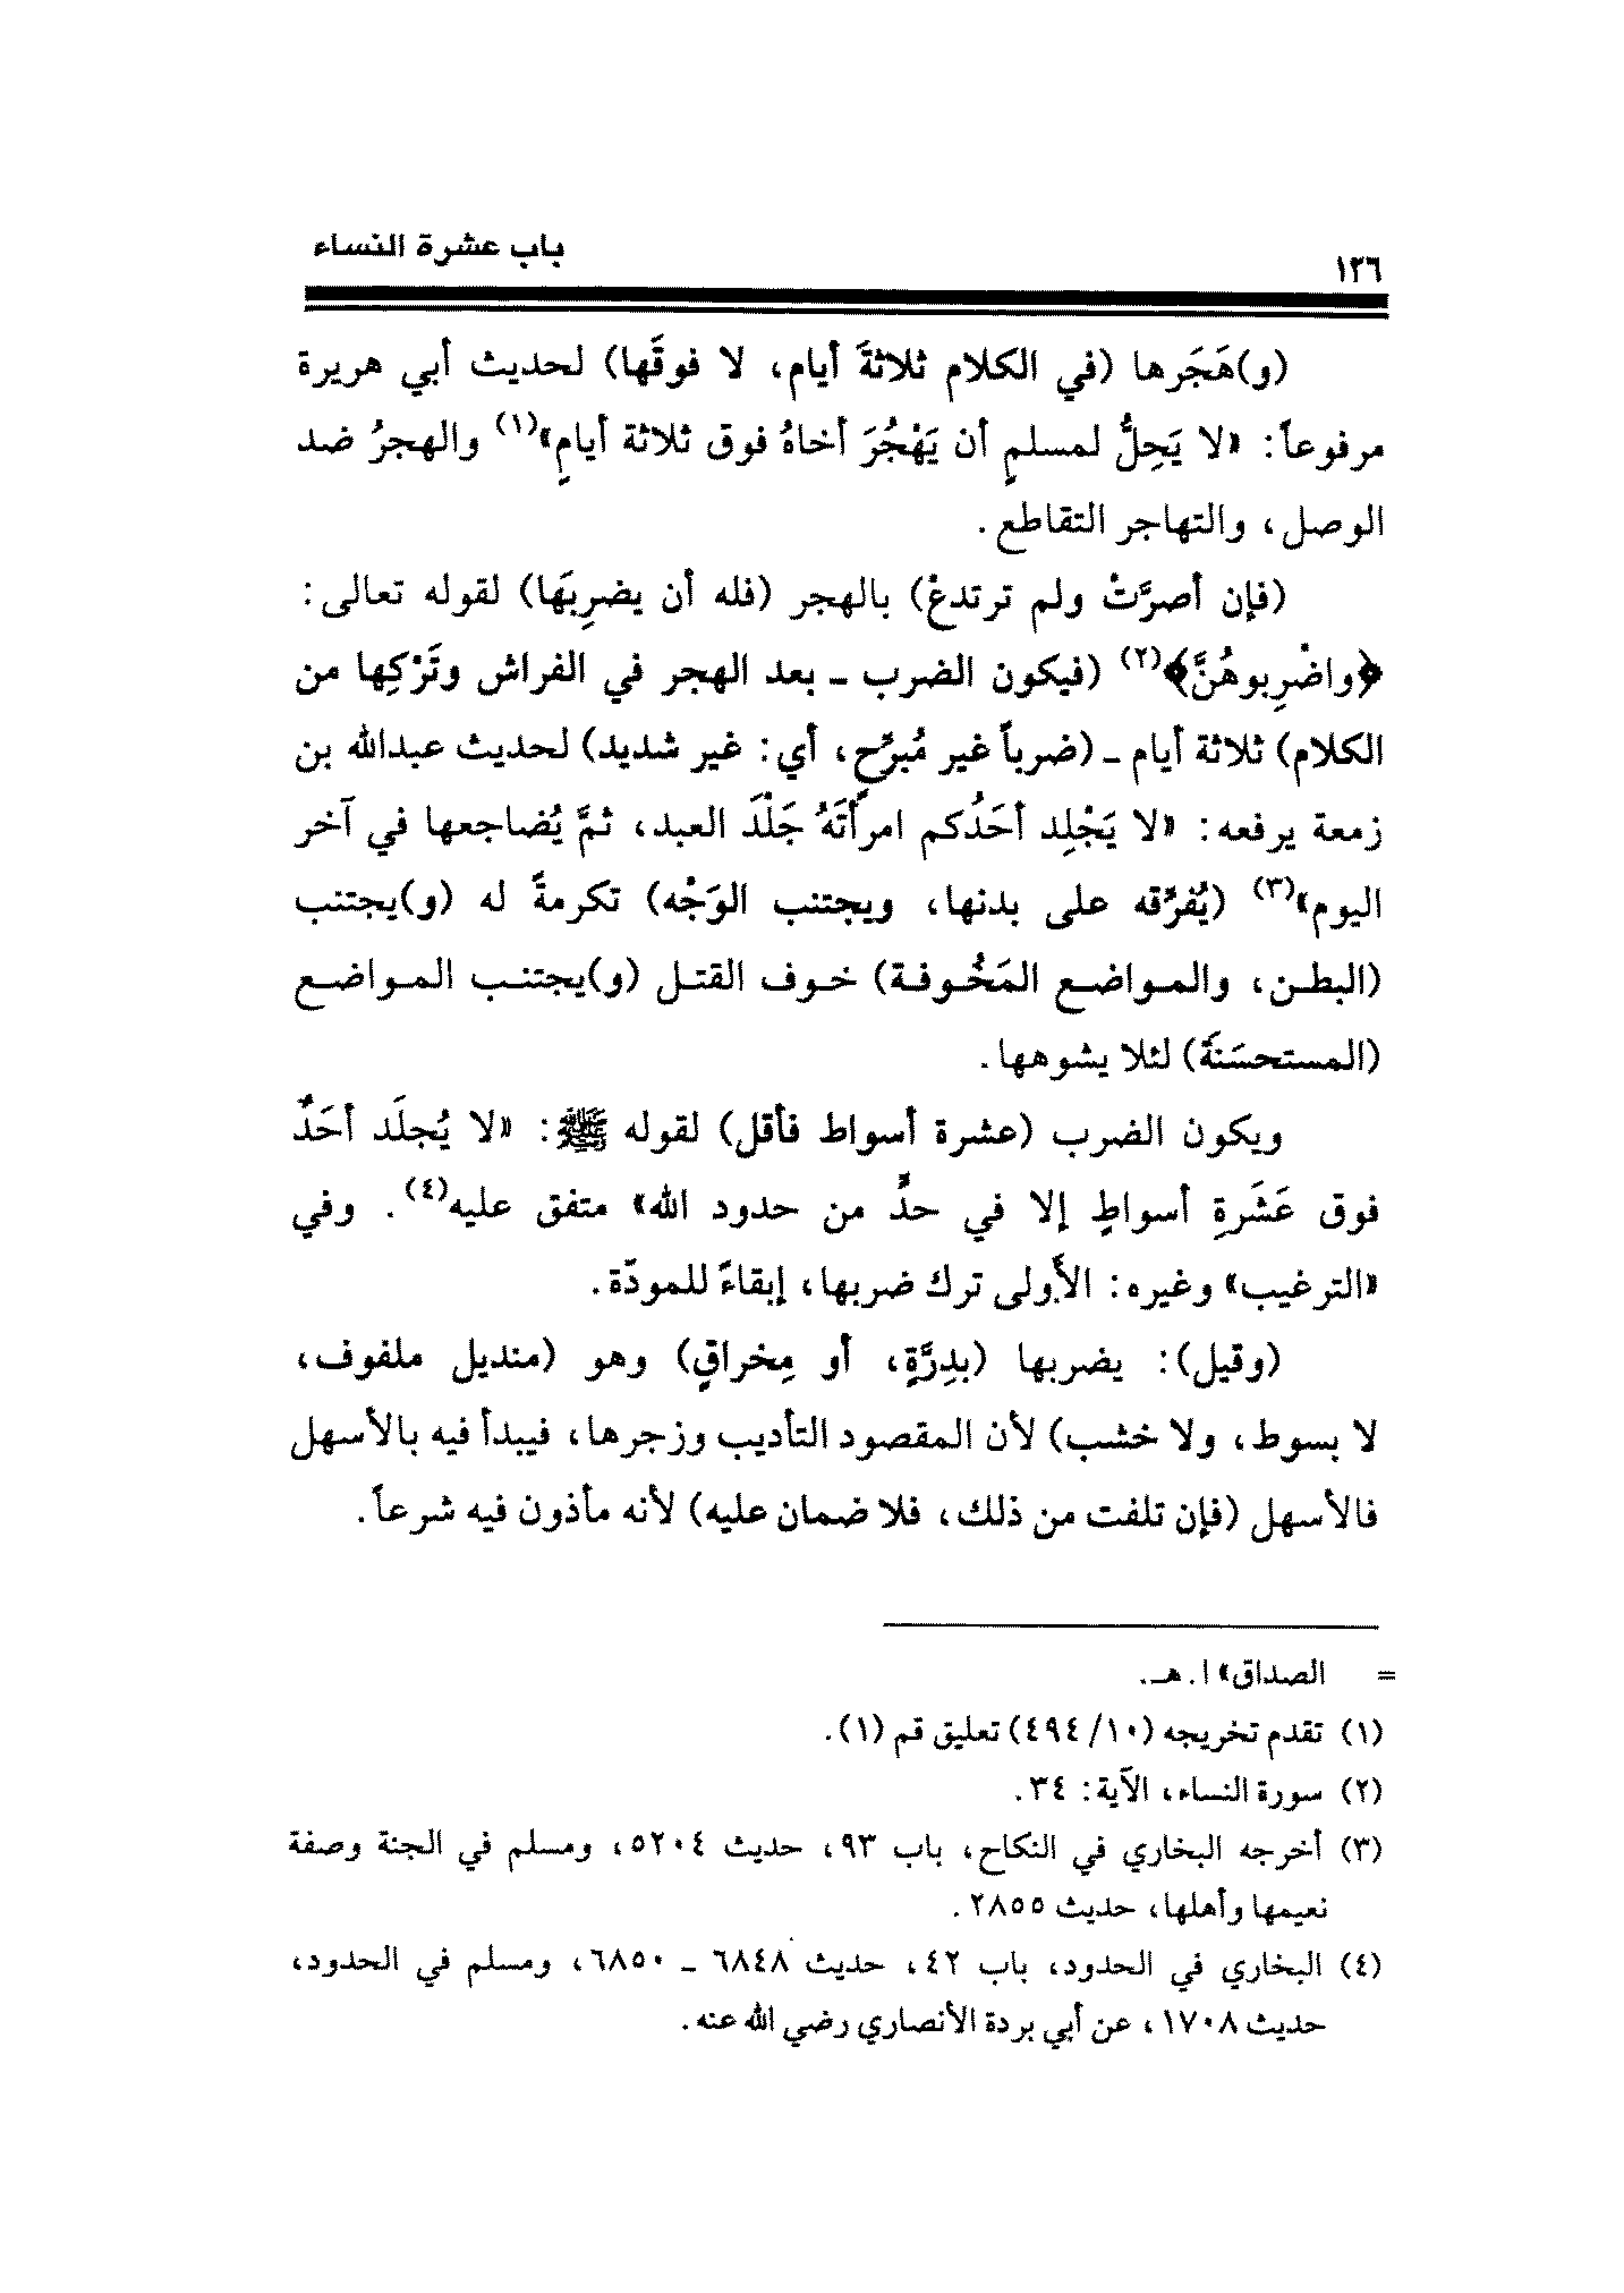 ١٣٦
باب عشرة النساء
(و)هَجَرها (في الكلام ثلاثةَ أيام، لا فوقَها) لحديث أبي هريرة
مرفوعاً: «لا يَحِلُّ لمسلمٍ أن يَهْجُرَ أخاهُ فوق ثلاثة أيامٍ»(١) والهجرُ ضد
الوصل، والتهاجر التقاطع.
(فإن أصرَّتْ ولم ترتدعْ) بالهجر (فله أن يضرِبَها) لقوله تعالى:
﴿واضْرِبوهُنَّ﴾(٢) (فيكون الضرب ـ بعد الهجر في الفراش وتَرْكِها من
الكلام) ثلاثة أيام ـ (ضرباً غير مُبرِّحٍ، أي: غير شديد) لحديث عبدالله بن
زمعة يرفعه: «لا يَجْلِد أحَدُكم امرأَتَهُ جَلْدَ العبد، ثمَّ يُضاجعها في آخر
اليوم»(٣) (يُفرِّقه على بدنها، ويجتنب الوَجْه) تكرمةً له (و)يجتنب
(البطـن، والمـواضـع المَخُـوفـة) خـوف القتـل (و)يجتنـب المـواضـع
(المستحسَنَة) لئلا يشوهها.
ويكون الضرب (عشرة أسواط فأقل) لقوله ﷺ: «لا يُجلَد أحَدٌ
فوق عَشَرةِ أسواطٍ إلا في حدٍّ من حدود الله» متفق عليه(٤). وفي
«الترغيب» وغيره: الأَولى ترك ضربها، إبقاءً للمودّة.
(وقيل): يضربها (بدِرَّةٍ، أو مِخراقٍ) وهو (منديل ملفوف،
لا بسوط، ولا خشب) لأن المقصود التأديب وزجرها، فيبدأ فيه بالأسهل
فالأسهل (فإن تلفت من ذلك، فلا ضمان عليه) لأنه مأذون فيه شرعاً.
= الصداق» ا. هـ.
(١) تقدم تخريجه (١٠/ ٤٩٤) تعليق قم (١).
(٢) سورة النساء، الآية: ٣٤.
(٣) أخرجه البخاري في النكاح، باب ٩٣، حديث ٥٢٠٤، ومسلم في الجنة وصفة
نعيمها وأهلها، حديث ٢٨٥٥.
(٤) البخاري في الحدود، باب ٤٢، حديث ٦٨٤٨ ـ ٦٨٥٠، ومسلم في الحدود،
حديث ١٧٠٨، عن أبي بردة الأنصاري رضي الله عنه.